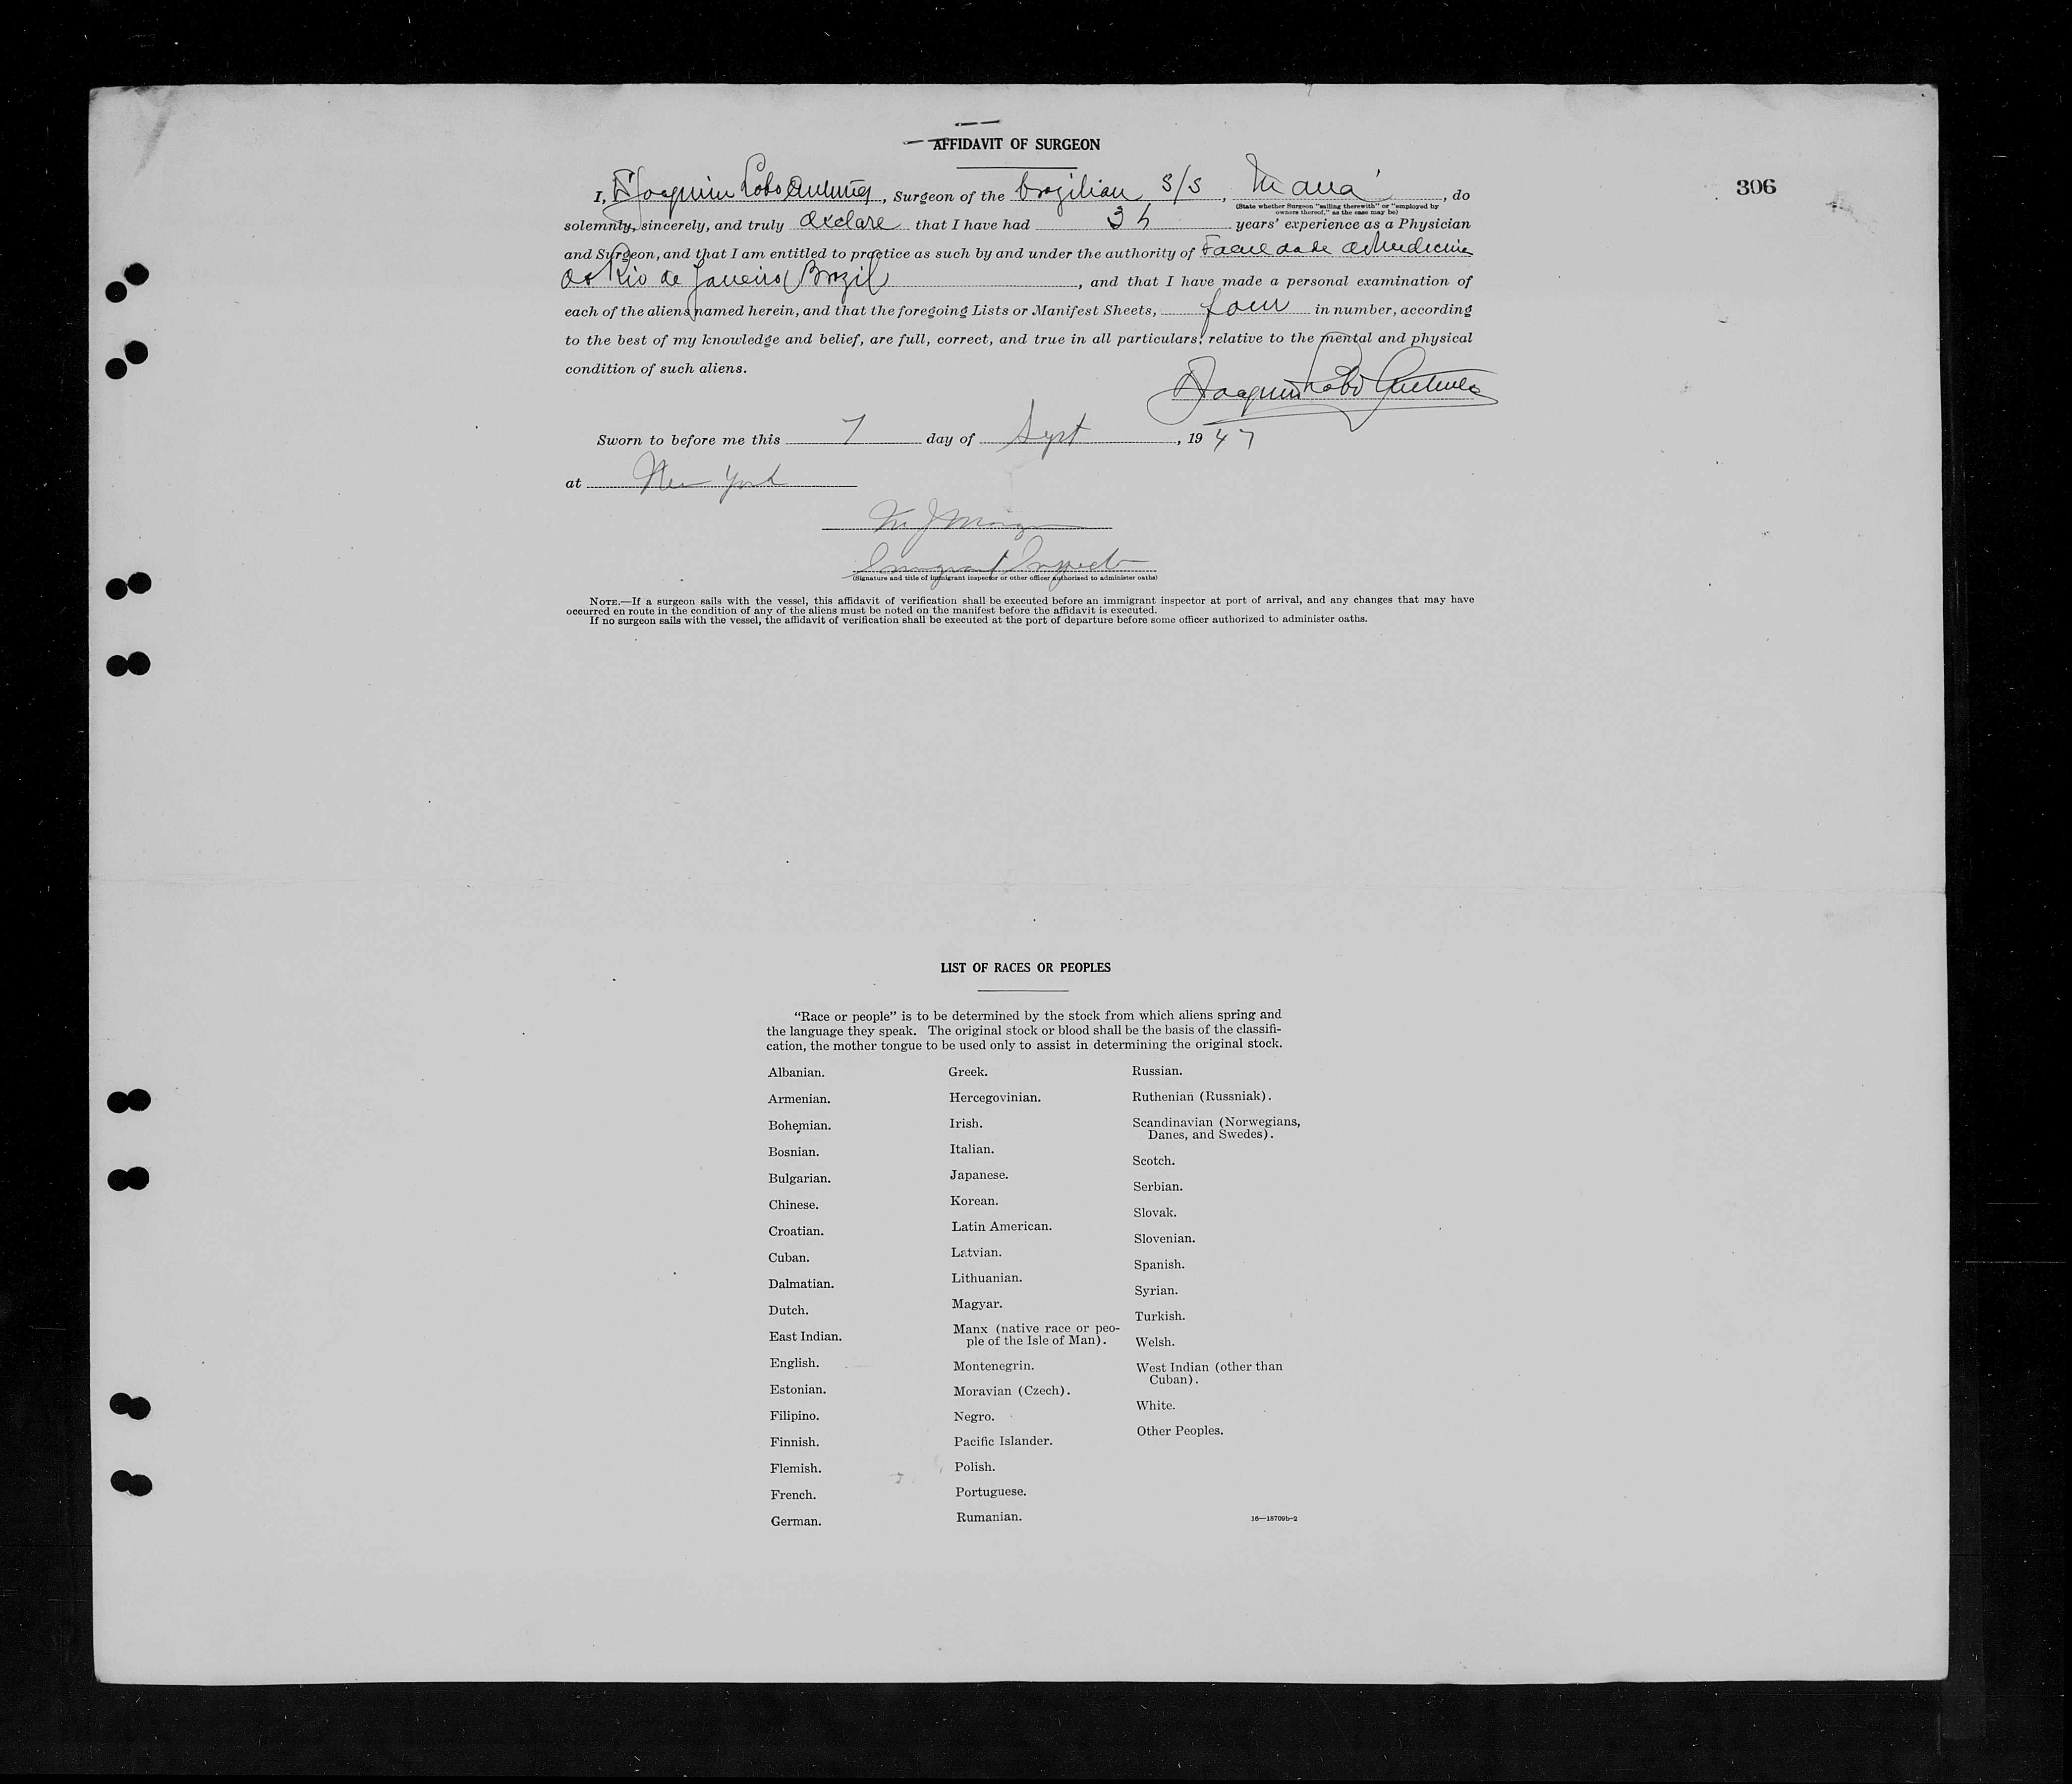 AFFIDAVIT OF SURGEON
306
I, Joaquim Lobo Antunes, Surgeon of the brazilian S/S, Mauá, do
(State whether Surgeon "sailing therewith" or "employed by
owners thereof," as the case may be)
solemnly, sincerely, and truly declare that I have had years' experience as a Physician
and Surgeon, and that I am entitled to practice as such by and under the authority of Faculdade de Medicina
do Rio de Janeiro (Brazil), and that I have made a personal examination of
each of the aliens named herein, and that the foregoing Lists or Manifest Sheets, four in number, according
to the best of my knowledge and belief, are full, correct, and true in all particulars, relative to the mental and physical
condition of such aliens.
Joaquim Lobo Antunes
Sworn to before me this 7 day of Sept, 1947
at New York
Immigrant Inspector
(Signature and title of immigrant inspector or other officer authorized to administer oaths)
NOTE.—If a surgeon sails with the vessel, this affidavit of verification shall be executed before an immigrant inspector at port of arrival, and any changes that may have
occurred en route in the condition of any of the aliens must be noted on the manifest before the affidavit is executed.
If no surgeon sails with the vessel, the affidavit of verification shall be executed at the port of departure before some officer authorized to administer oaths.
LIST OF RACES OR PEOPLES
"Race or people" is to be determined by the stock from which aliens spring and
the language they speak. The original stock or blood shall be the basis of the classifi-
cation, the mother tongue to be used only to assist in determining the original stock.
Albanian.
Armenian.
Bohemian.
Bosnian.
Bulgarian.
Chinese.
Croatian.
Cuban.
Dalmatian.
Dutch.
East Indian.
English.
Estonian.
Filipino.
Finnish.
Flemish.
French.
German.
Greek.
Hercegovinian.
Irish.
Italian.
Japanese.
Korean.
Latin American.
Latvian.
Lithuanian.
Magyar.
Manx (native race or peo-
ple of the Isle of Man).
Montenegrin.
Moravian (Czech).
Negro.
Pacific Islander.
Polish.
Portuguese.
Rumanian.
Russian.
Ruthenian (Russniak).
Scandinavian (Norwegians,
Danes, and Swedes).
Scotch.
Serbian.
Slovak.
Slovenian.
Spanish.
Syrian.
Turkish.
Welsh.
West Indian (other than
Cuban).
White.
Other Peoples.
16—18709b-2